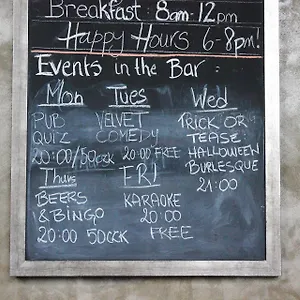 Breakfast: 8am-12pm
Happy Hours 6-8pm!
Events in the Bar:
Mon
PUB
QUIZ
20:00/50CZK
Tues
VELVET
COMEDY
20:00 FREE
Wed
TRICK OR
TEASE:
HALLOWEEN
BURLESQUE
21:00
Thurs
BEERS
& BINGO
20:00 50CZK
FRI
KARAOKE
20:00
FREE